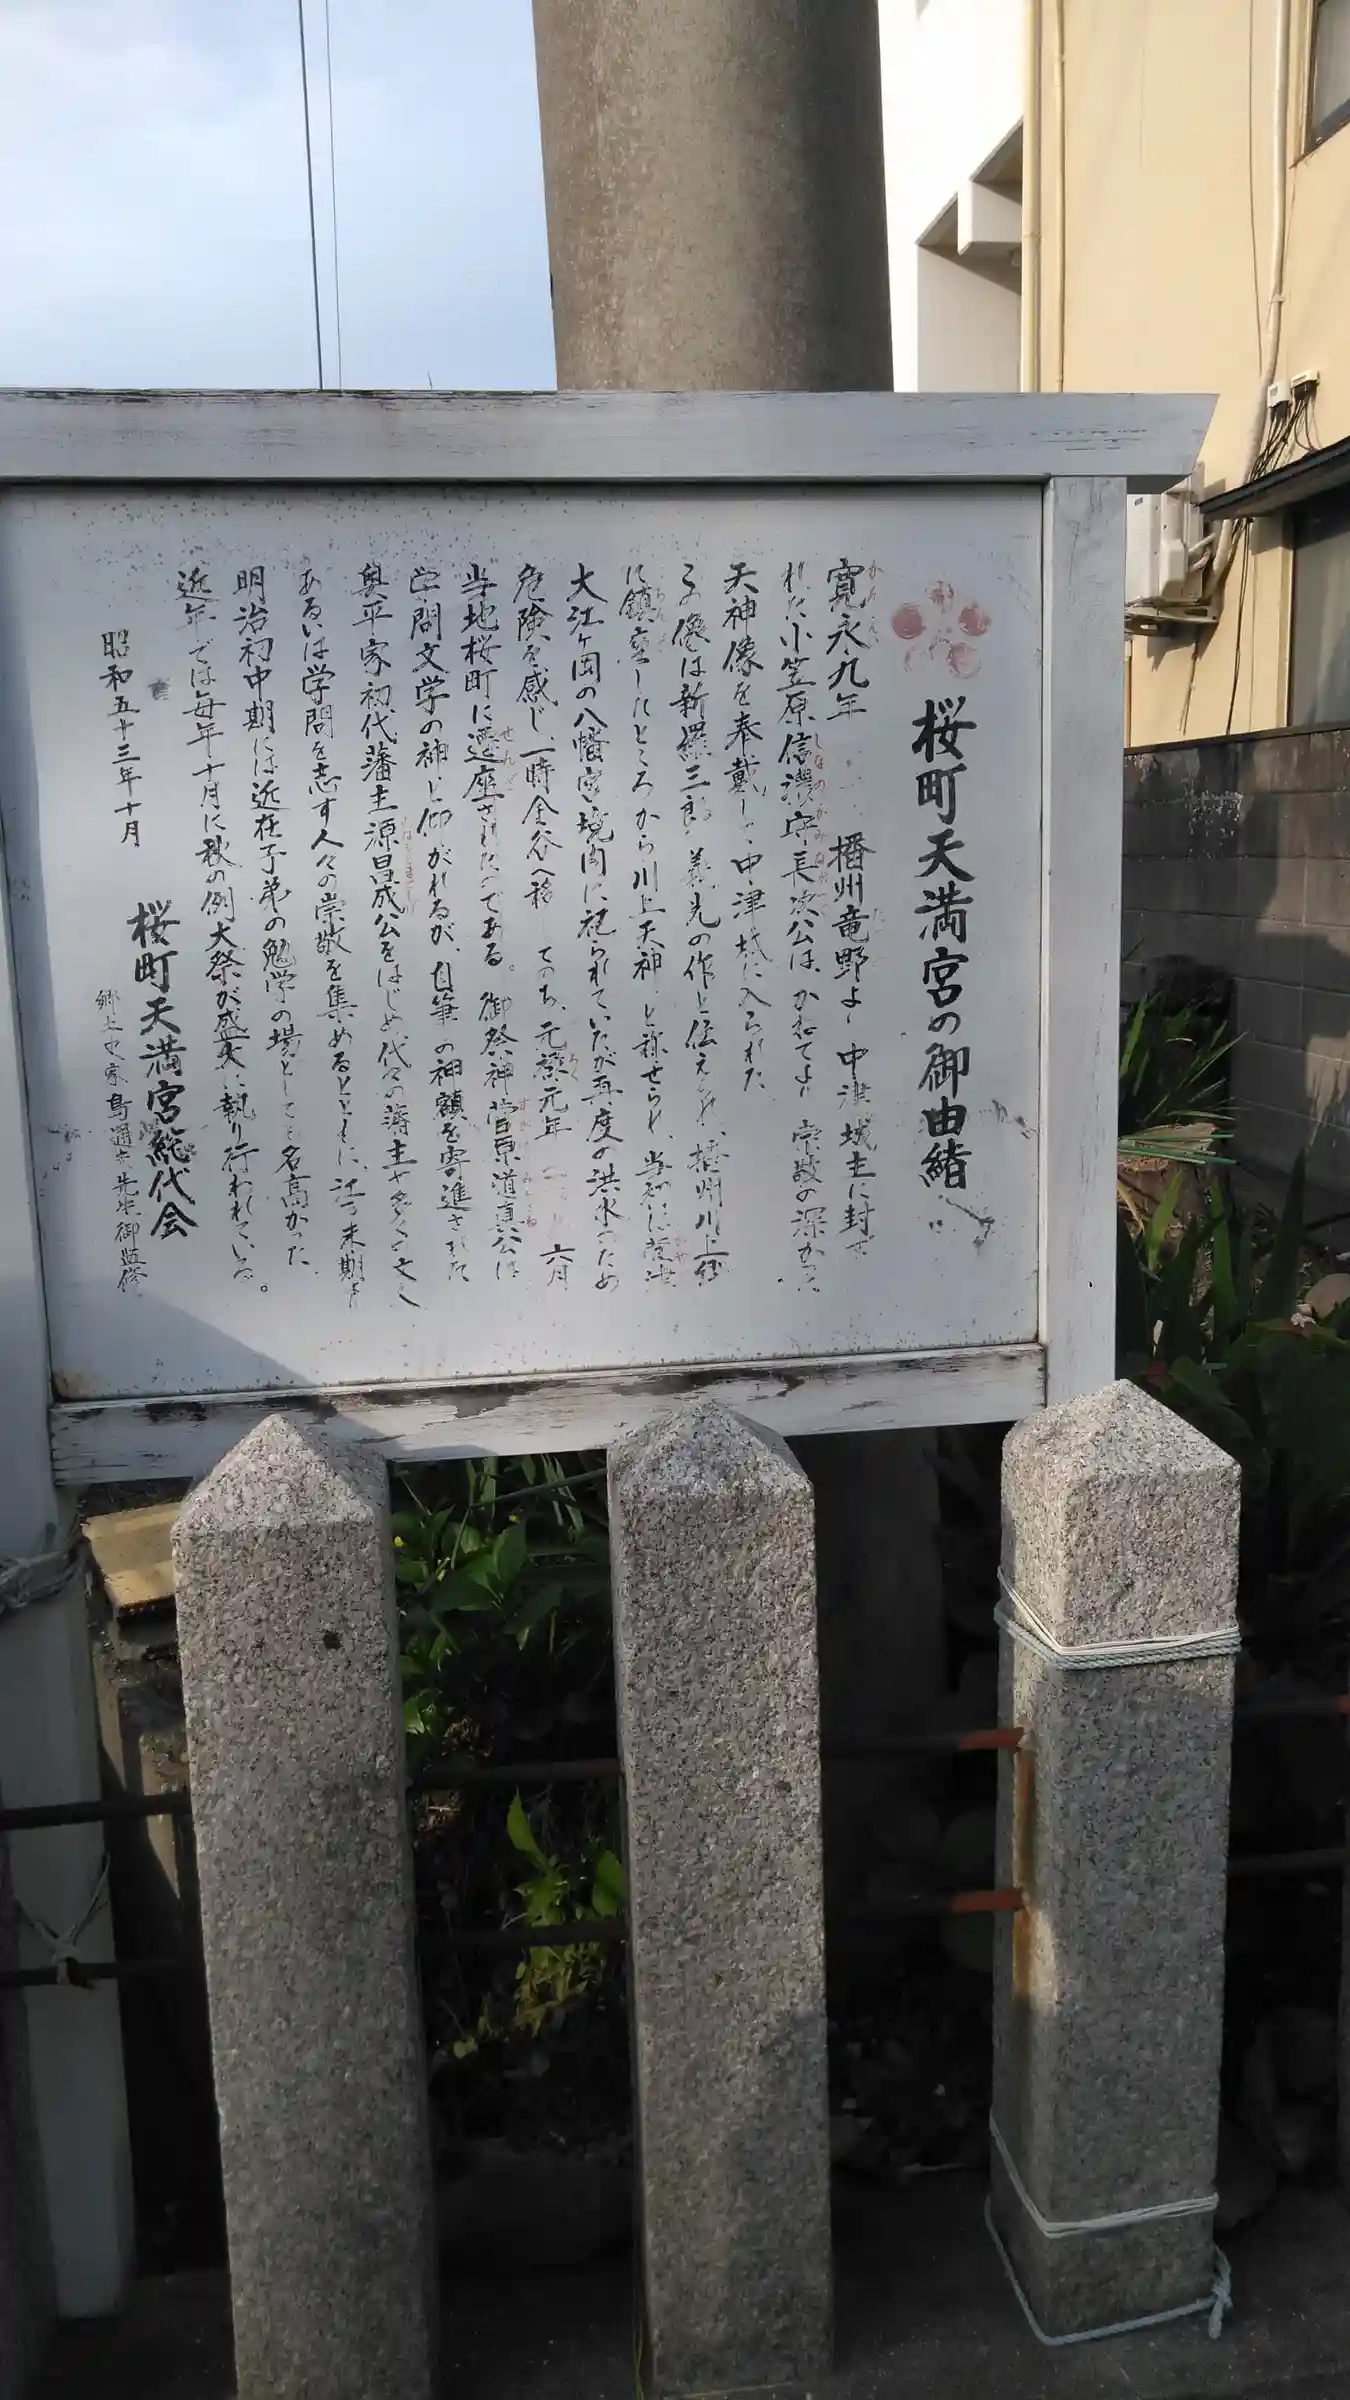 桜町天満宮の御由緒
寛永九年 播州竜野より中津城主に封ぜ
られた小笠原信濃守長次公は、かねてより崇敬の深かった
天神像を奉戴して中津城に入られた
この像は新羅三郎義光の作と伝えられ、播州川上
に鎮座したところから川上天神と称せられ、当初は
大江ヶ岡の八幡宮境内に祀られていたが再度の洪水のため
危険を感じ、一時金谷へ移してのち、元禄元年 六月
当地桜町に遷座されたのである。御祭神菅原道真公は
学問文学の神と仰がれるが、自筆の神額を寄進された
奥平家初代藩主源昌成公をはじめ、代々の藩主や多くの文人
あるいは学問を志す人々の崇敬を集めるとともに、江戸末期より
明治初中期には近在子弟の勉学の場としても名高かった
近年では毎年十月に秋の例大祭が盛大に執り行われている。
昭和五十三年十月
桜町天満宮総代会
郷土史家島通夫先生御監修